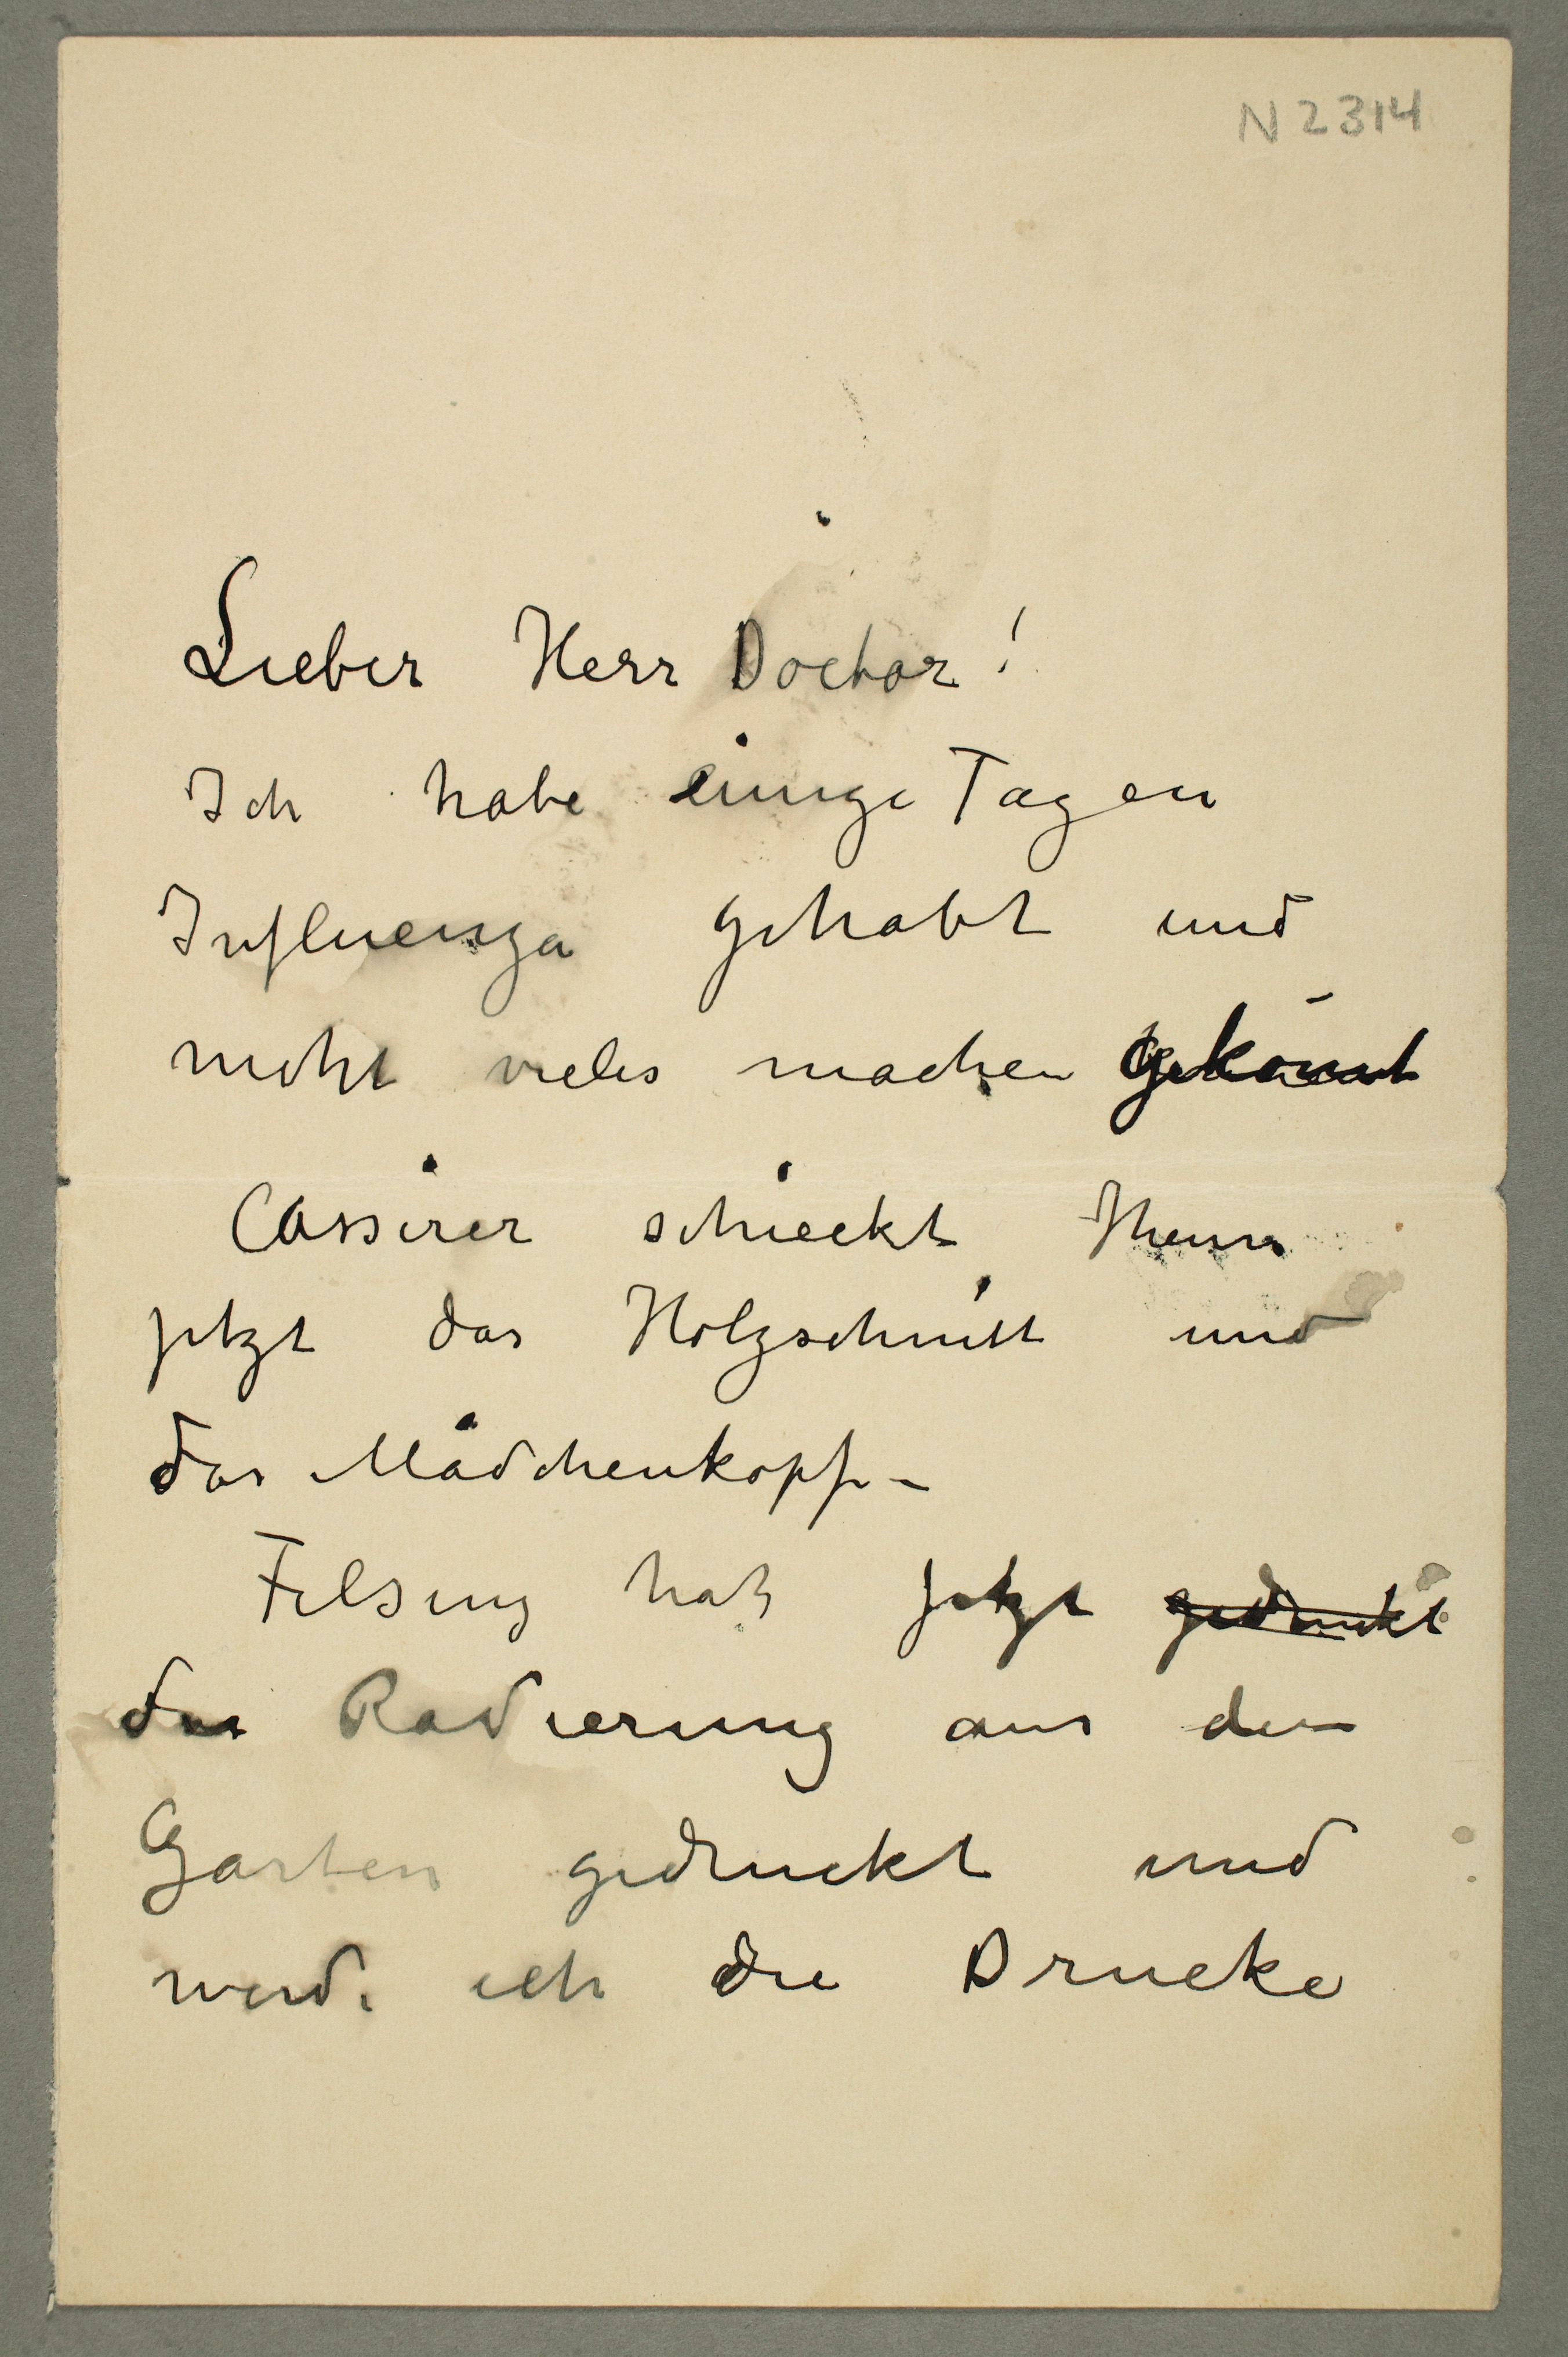 N 2314
Lieber Herr Doctor!
Ich habe einige Tagen
Influenza gehabt und
nicht vieles machen gekonnt
Cassirer schieckt Ihnen
jetzt das Holzschnitt und
das Mädchenkopf –
Felsing hat jetzt gedruckt
das Radierung aus dem
Garten gedruckt und
werde ich die Drucke